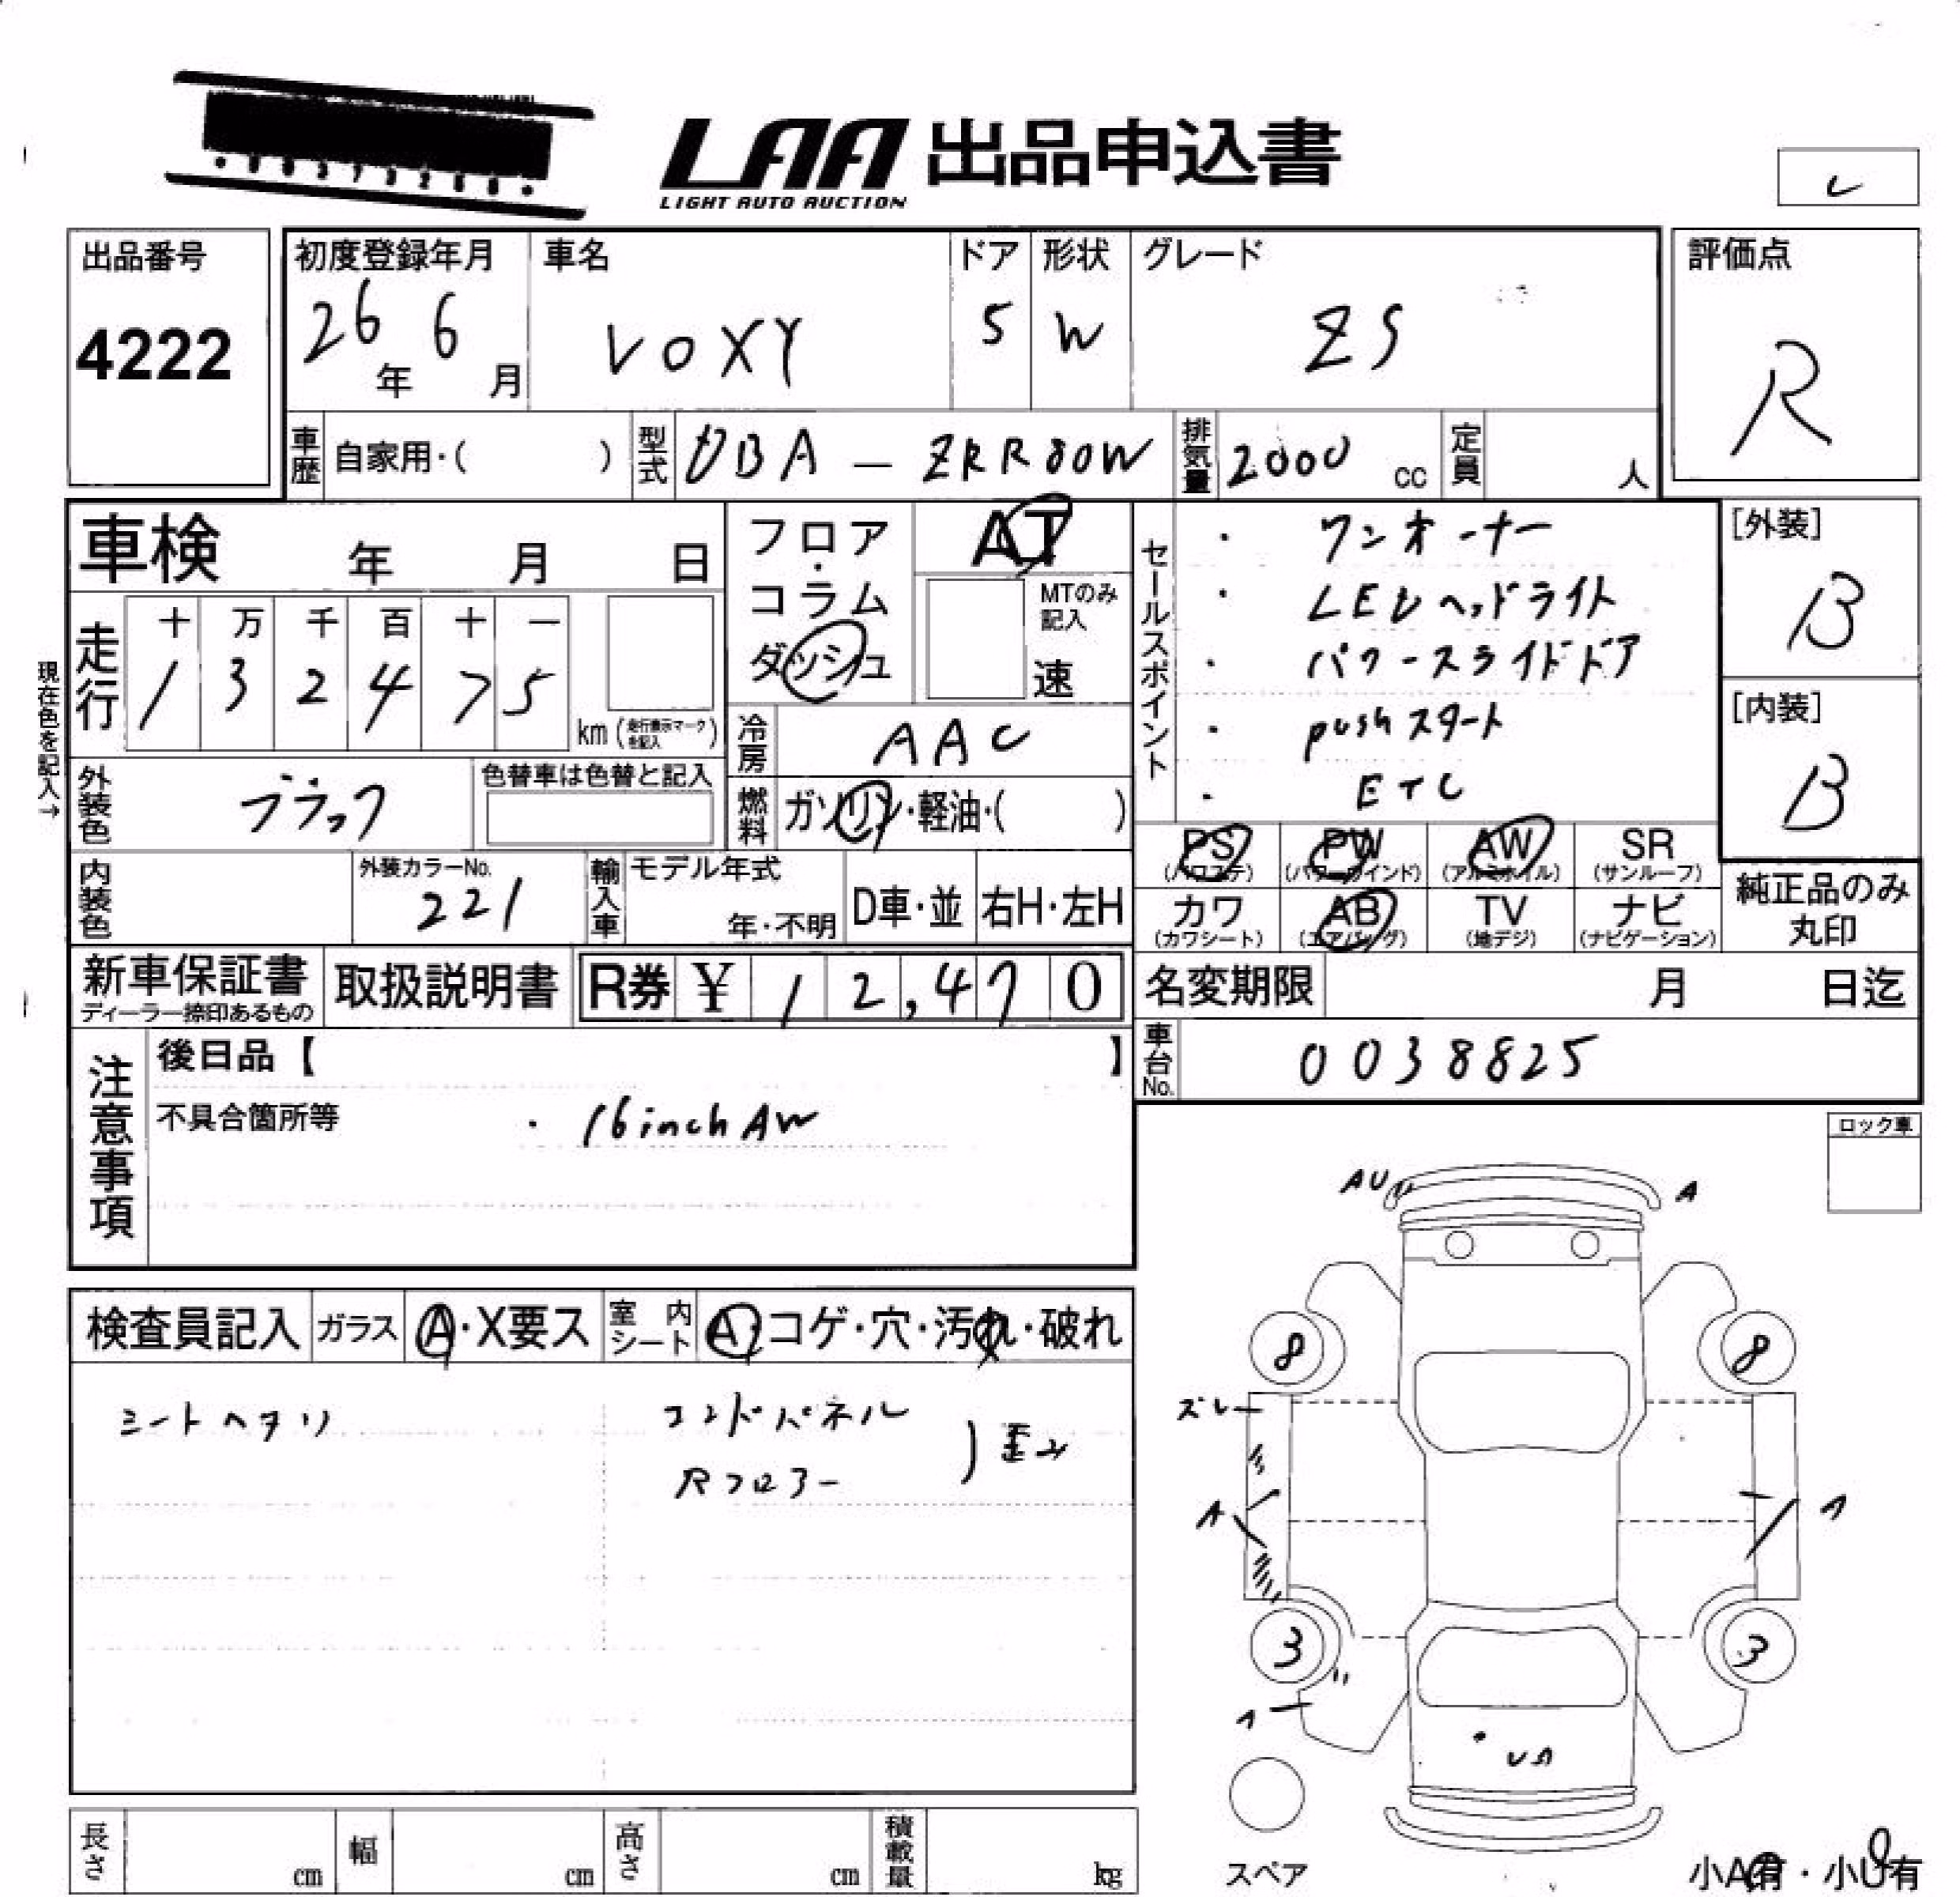 LAA 出品申込書
LIGHT AUTO AUCTION
レ
出品番号
4222
初度登録年月
26年 6月
車名
VOXY
ドア
5
形状
W
グレード
ZS
評価点
R
車歴 自家用・( )
型式 DBA － ZRR80W
排気量 2000 cc
定員 人
車検 年 月 日
フロア・コラム ダッシュ
AT
MTのみ記入
速
セールスポイント
・ワンオーナー
・LEDヘッドライト
・パワースライドドア
・pushスタート
・ETC
[外装]
B
[内装]
B
現在色を記入→
走行
十 万 千 百 十 一
1 3 2 4 7 5
km (走行表示マークを記入)
冷房 AAC
外装色 ブラック
色替車は色替と記入
燃料 ガソリン・軽油・( )
PS (パワステ) PW (パワーウインド) AW (アルミホイル) SR (サンルーフ)
カワ (カワシート) AB (エアバッグ) TV (地デジ) ナビ (ナビゲーション)
純正品のみ丸印
内装色
外装カラーNo.
221
輸入車
モデル年式
年・不明
D車・並 右H・左H
新車保証書
ディーラー捺印あるもの
取扱説明書
R券 ¥ 12,470
名変期限 月 日迄
車台No. 0038825
注意事項
後日品【 】
不具合箇所等
・16inchAW
ロック車
検査員記入 ガラス A・X要ス 室内シート A・コゲ・穴・汚れ・破れ
シートヘタリ
コンドパネル
Rフロアー
歪み
AU
A
8
8
ズレ
A
ワ
3
3
ワ
スペア
小A有・小U有
長さ cm
幅 cm
高さ cm
積載量 kg